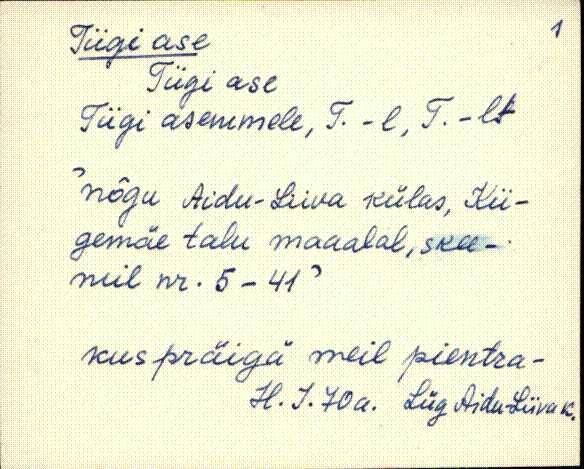 1
Tiigi ase
Tiigi ase
Tiigi asemmele, T. - l, T. - lt
'nõgu Aidu-Liiva külas, Kii-
gemäe talu maaalal, skee-
meil nr. 5 - 41'
kus präigä meil pientra-
H. J. 70a. Lüg Aidu-Liiva k.